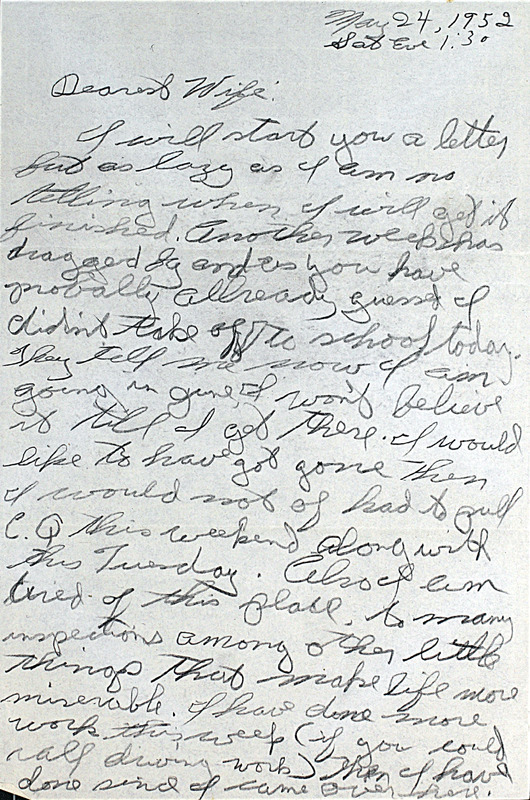 May 24, 1952
Sat Eve 1:30
Dearest Wife:
I will start you a letter
but as lazy as I am no
telling when I will get it
finished. Another week has
dragged by and as you have
probally allready guessed I
didn't take off to school today.
They tell me now I am
going in June, I won't believe
it till I get there. I would
like to have got gone then
I would not of had to pull
C.Q this weekend along with
this Tuesday. Also I am
tired of this place, to many
inspections among other little
things that make life more
miserable. I have done more
work this week (if you could
call driving work) then I have
done sinc I came over here.